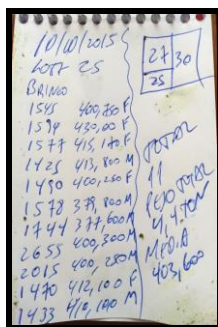 10/10/2015
LOTE 25
BRINCO
1545 400,750 F
1594 430,00 F
1577 415,170 F
1425 413,800 M
1490 400,250 F
1578 379,800 M
1744 377,600 M
2655 400,300 M
2015 400,250 M
1470 412,100 F
1433 410,100 M
27 30
25
TOTAL
11
PESO TOTAL
MEDIA
403,600